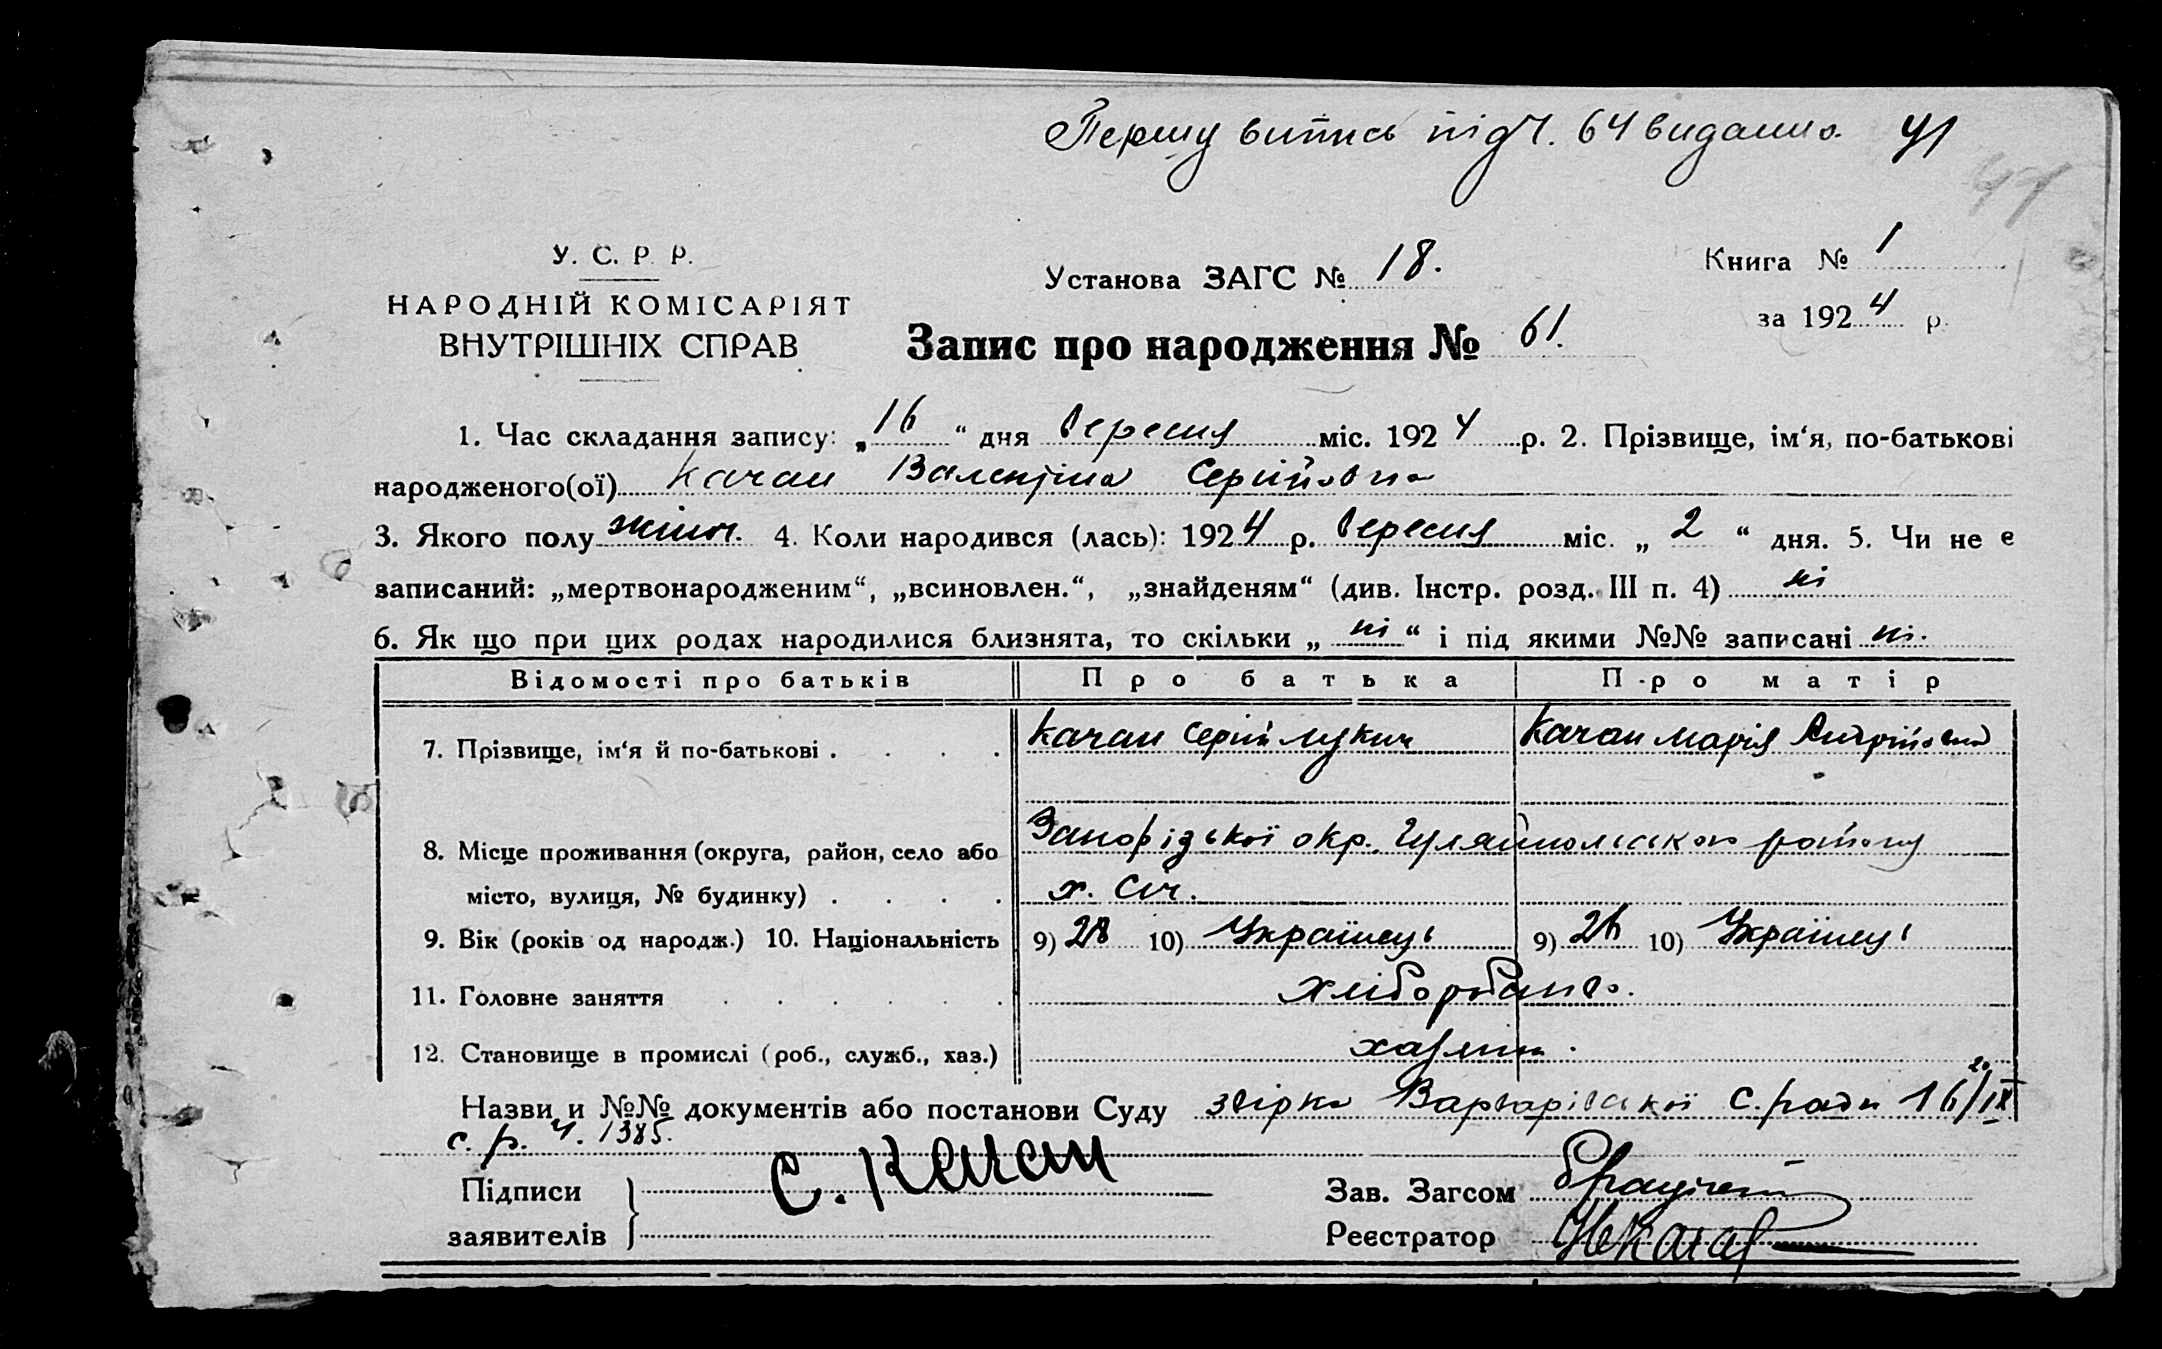 Першу випись під Ч. 64 видано. 41
У. С. Р. Р.
НАРОДНІЙ КОМІСАРІЯТ
ВНУТРІШНІХ СПРАВ
Установа ЗАГС № 18.
Книга № 1
за 1924 р.
Запис про народження № 61.
1. Час складання запису: „16“ дня вересня міс. 1924 р. 2. Прізвище, ім‘я, по-батькові
народженого(ої) Качан Валентіна Сергійовна
3. Якого полу жіноч. 4. Коли народився (лась): 1924 р. вересня міс. „2“ дня. 5. Чи не є
записаний: „мертвонародженим“, „всиновлен.“, „знайденям“ (див. Інстр. розд. III п. 4) ні
6. Як що при цих родах народилися близнята, то скільки „ні“ і під якими №№ записані ні.
Відомості про батьків Про батька Про матір
7. Прізвище, ім‘я й по-батькові . . . . Качан Сергій Лукич Качан Марія Андрійовна
8. Місце проживання (округа, район, село або Запорізької окр. Гуляйпольского району
місто, вулиця, № будинку) . . . . х. Січ.
9. Вік (років од народж.) 10. Національність 9) 28 10) Українець 9) 26 10) Українець
11. Головне заняття . . . . . . хліборобство.
12. Становище в промислі (роб., служб., хаз.) хазяин.
Назви и №№ документів або постанови Суду Варварівської с. ради 16/IX
с. р. Ч. 1385.
Підписи С. Качан Зав. Загсом
заявителів Реєстратор